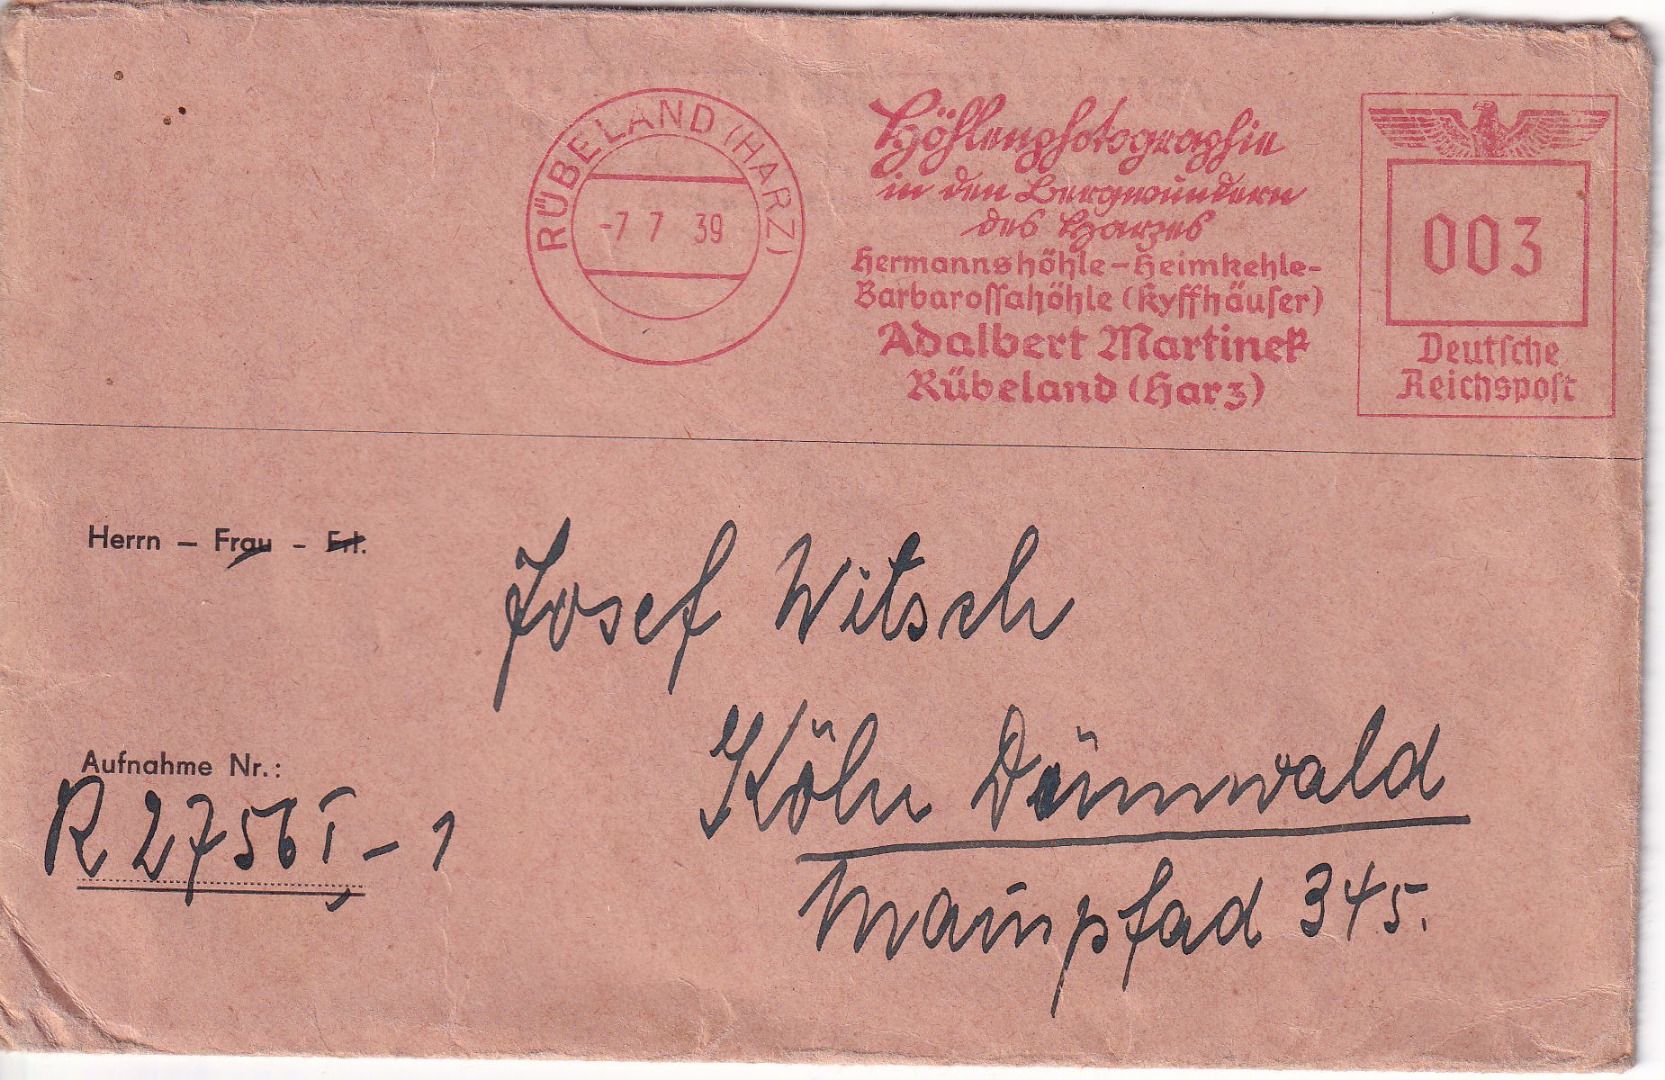 RÜBELAND (HARZ)
-7 7 39
Höhlenphotographie
in den Bergwundern
des Harzes
Hermannshöhle-Heimkehle-
Barbarossahöhle (Kyffhäuser)
Adalbert Martinek
Rübeland (Harz)
003
Deutsche
Reichspost
Herrn – Frau – Frl.
Josef Witsch
Aufnahme Nr.:
R 2756 I, - 1
Köln Dünnwald
345.